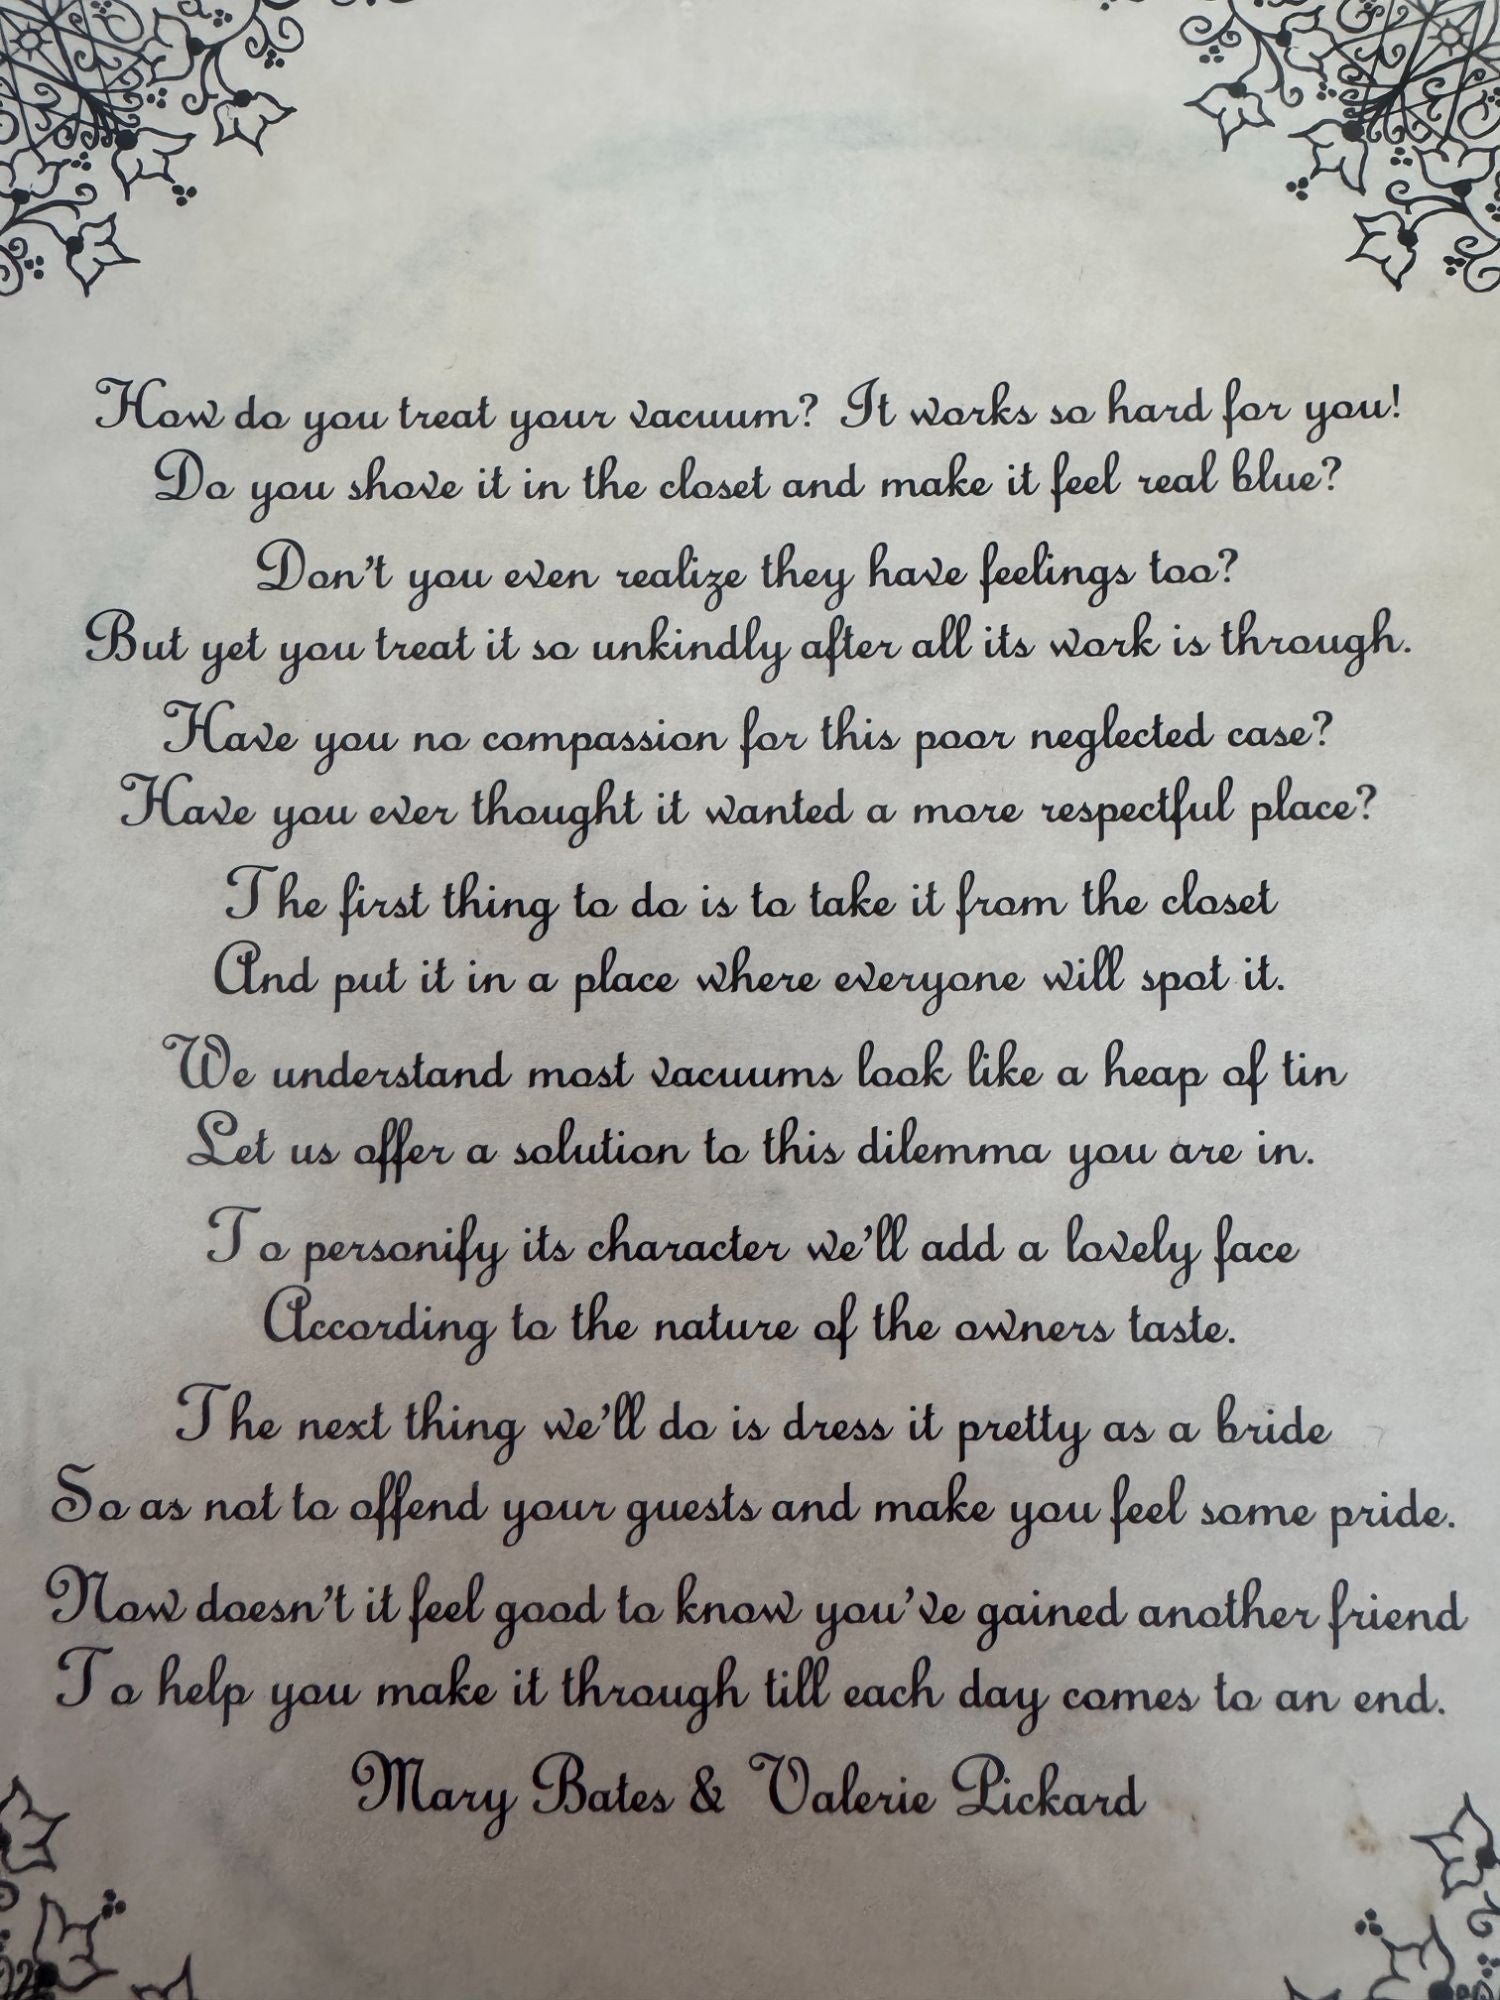 How do you treat your vacuum? It works so hard for you!
Do you shove it in the closet and make it feel real blue?
Don't you even realize they have feelings too?
But yet you treat it so unkindly after all its work is through.
Have you no compassion for this poor neglected case?
Have you ever thought it wanted a more respectful place?
The first thing to do is to take it from the closet
And put it in a place where everyone will spot it.
We understand most vacuums look like a heap of tin
Let us offer a solution to this dilemma you are in.
To personify its character we'll add a lovely face
According to the nature of the owners taste.
The next thing we'll do is dress it pretty as a bride
So as not to offend your guests and make you feel some pride.
Now doesn't it feel good to know you've gained another friend
To help you make it through till each day comes to an end.
Mary Bates & Valerie Pickard